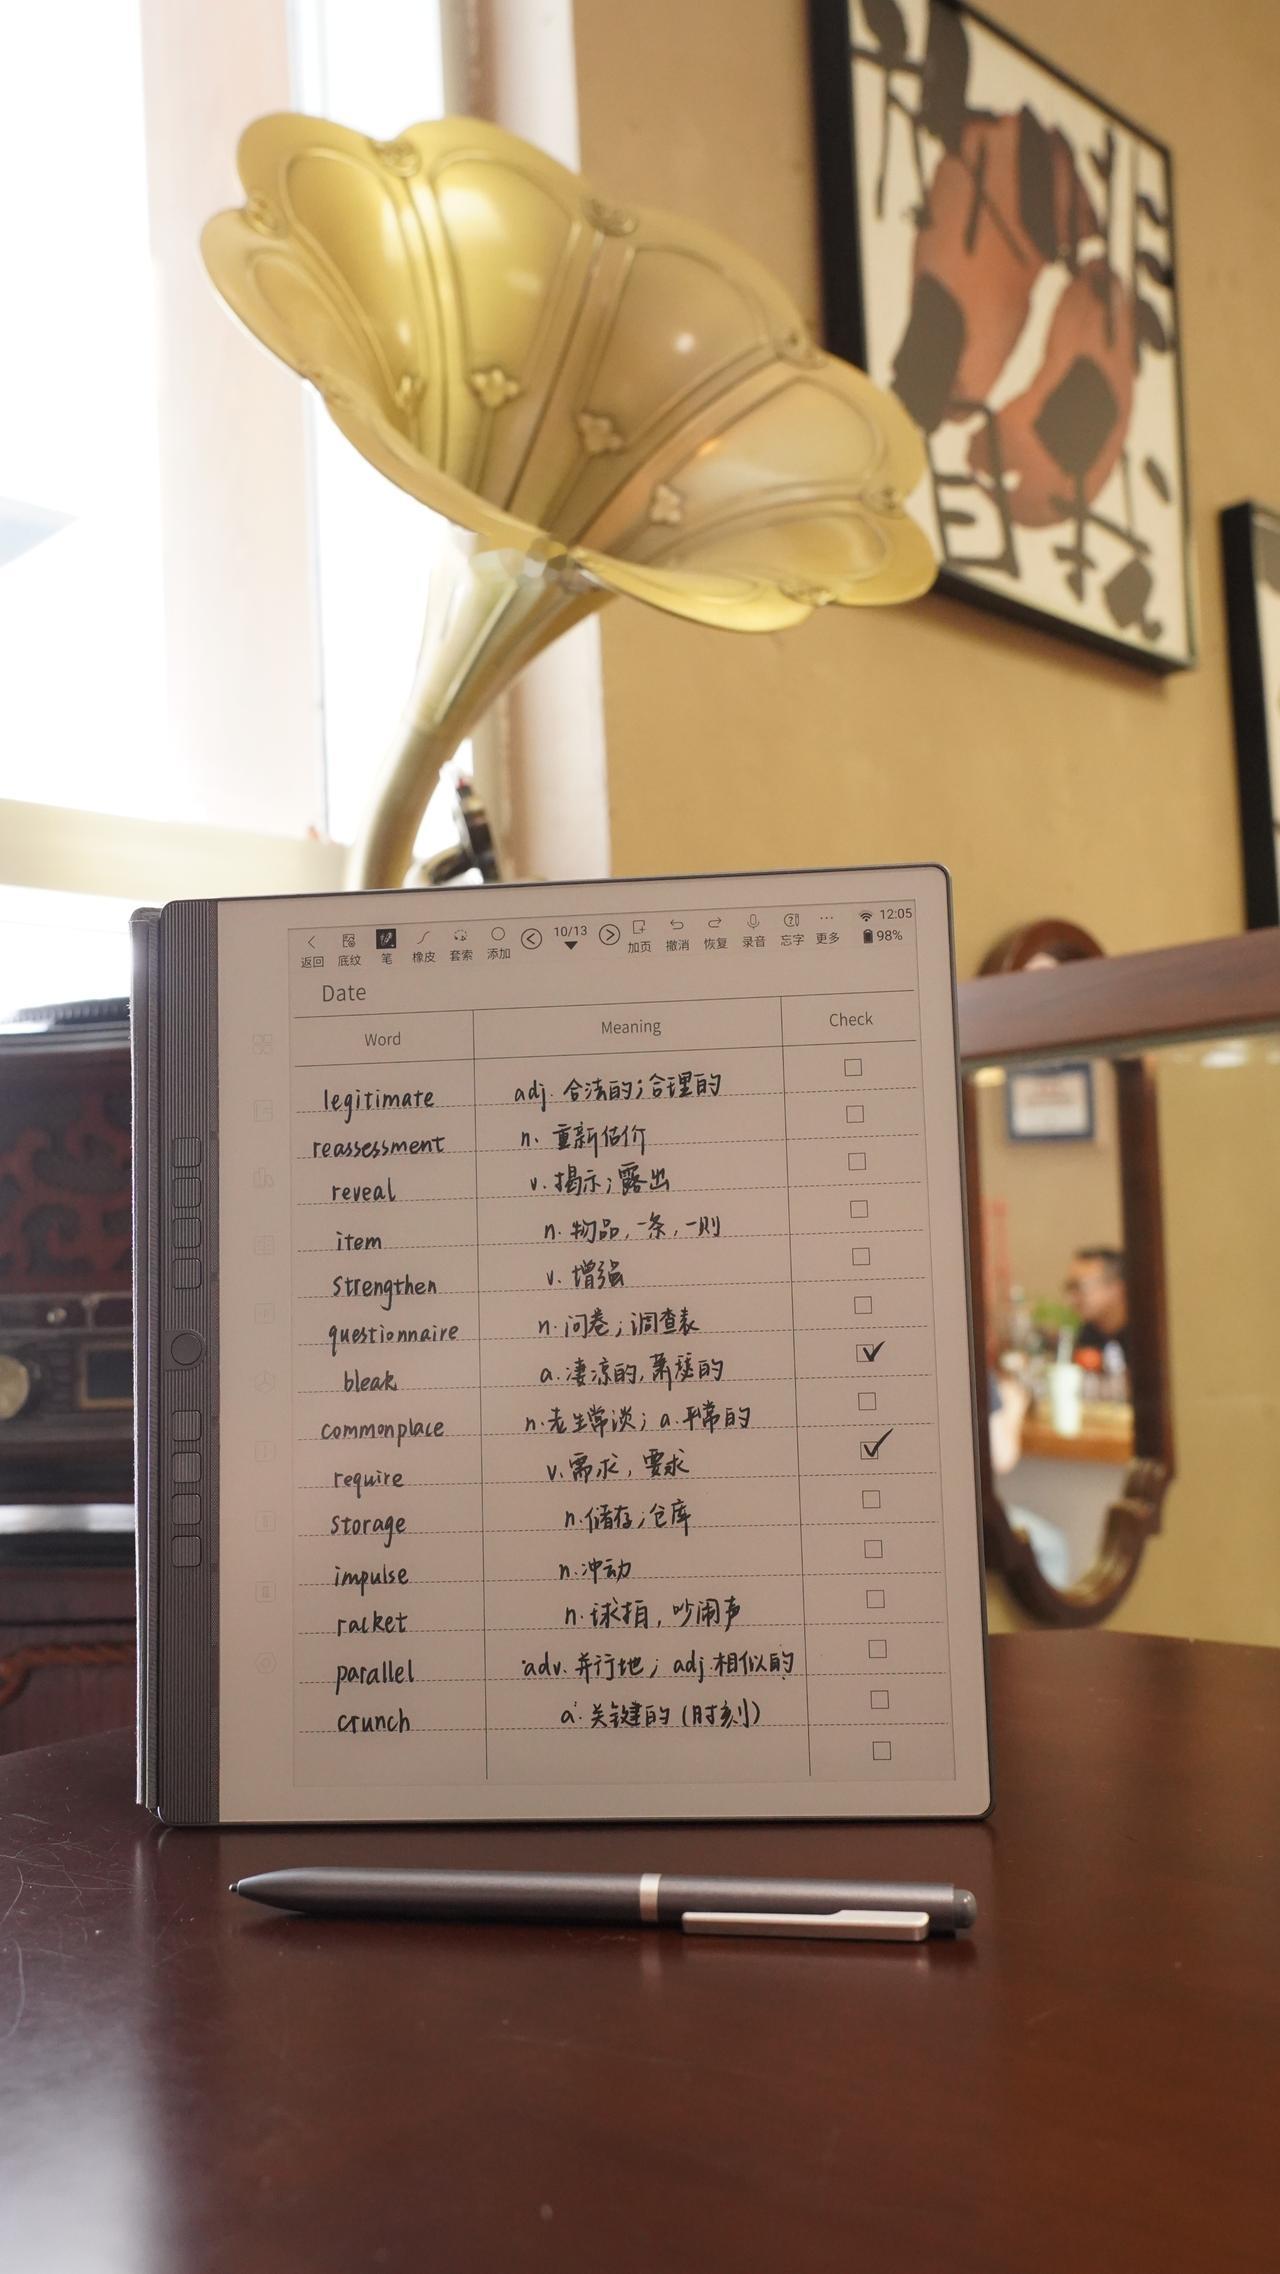 12:05
10/13
98%
返回 底纹 笔 橡皮 套索 添加 加页 撤消 恢复 录音 忘字 更多
Date
Word Meaning Check
legitimate adj. 合法的;合理的
reassessment n. 重新估价
reveal v. 揭示;露出
item n. 物品,一条,一则
strengthen v. 增强
questionnaire n. 问卷;调查表
bleak a. 凄凉的,萧瑟的
commonplace n. 老生常谈; a. 平常的
require v. 需求,要求
storage n. 储存;仓库
impulse n. 冲动
racket n. 球拍,吵闹声
parallel adv. 并行地; adj. 相似的
crunch a. 关键的(时刻)